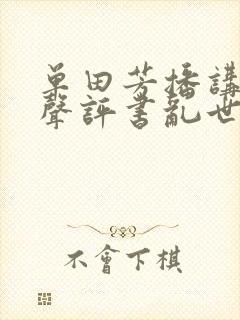 单田芳播講
聲評書亂世
不會下棋